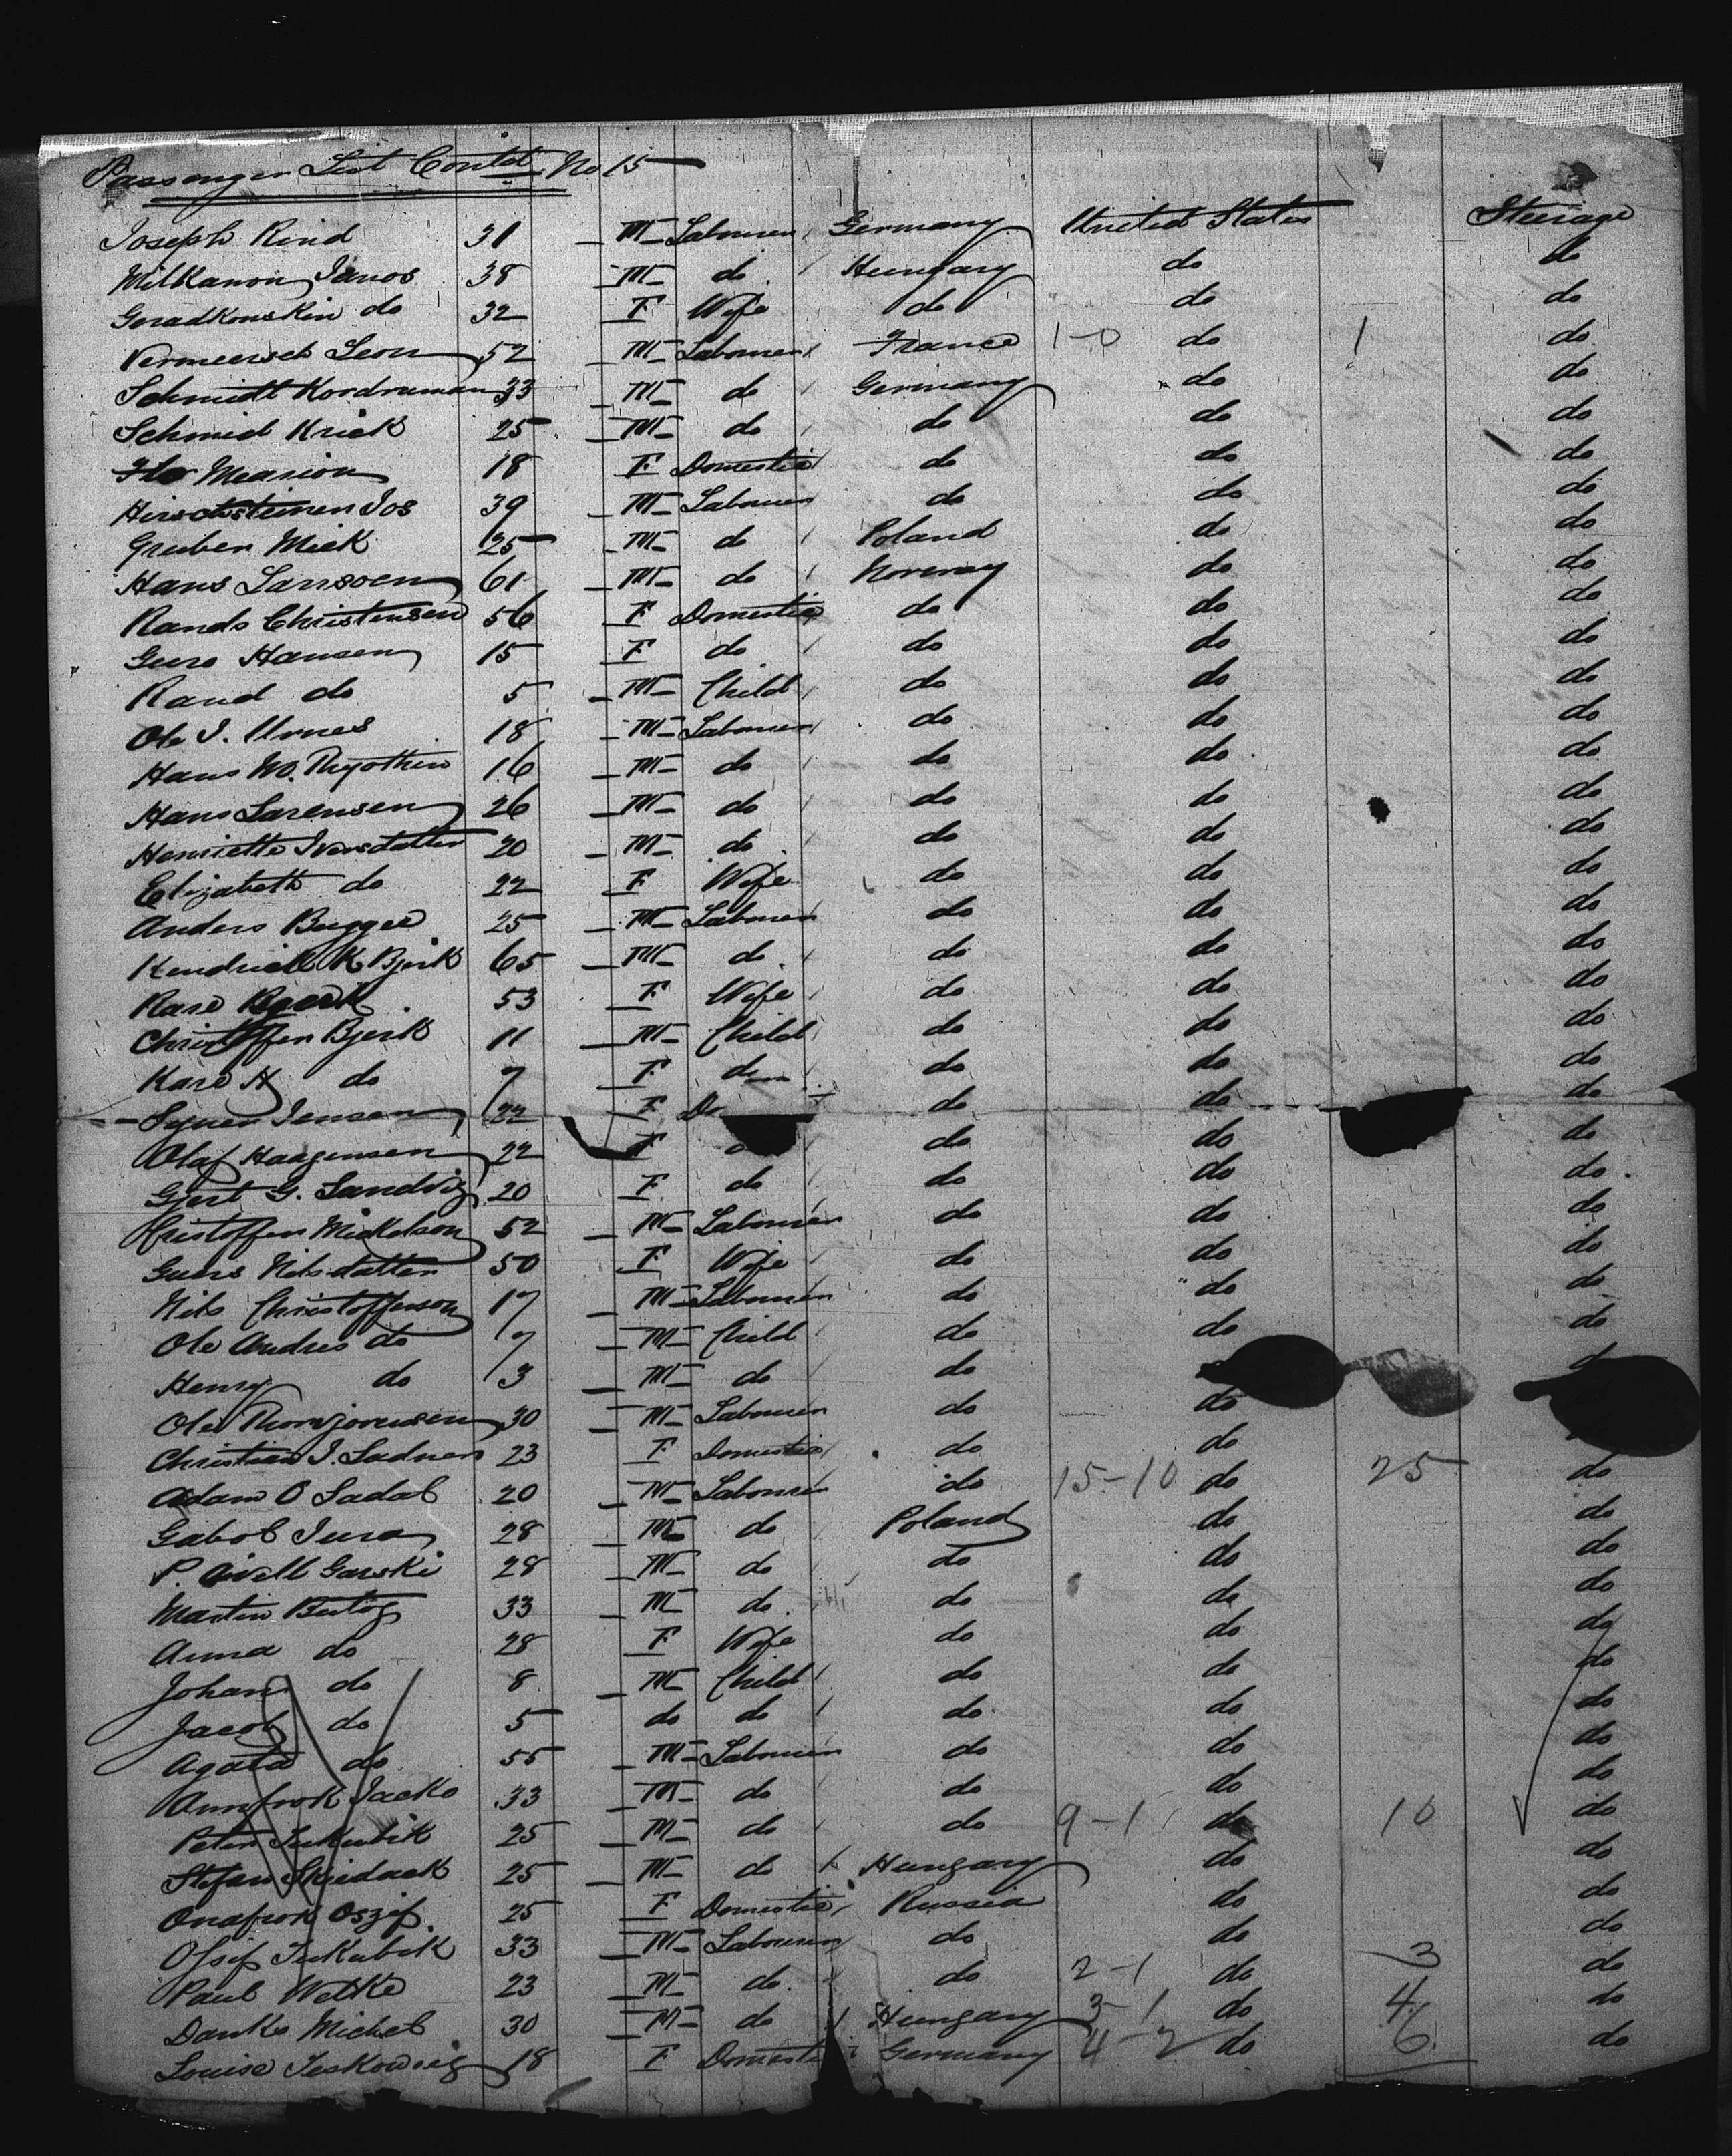 Passenger List Contd. No 15
Joseph Rind 31 M Labourer Germany United States Steerage
Milkanon Janos 38 M do Hungary do do
do 32 F Wife do do do
Vermeersch Leon 52 M Labourer France 1-0 do 1 do
Schmidt 33 M do Germany do do
Schmid Krick 25 M do do do do
Marion 18 F Domestic do do do
Jos 39 M Labourer do do do
Gruber Mick 25 M do Poland do do
Hans Larssoen 61 M do Norway do do
Rando Christensen 56 F Domestic do do do
Guro Hansen 15 F do do do do
Rand do 5 M Child do do do
Ole J. Urnes 18 M Labourer do do do
Hans 16 M do do do do
Hans Larensen 26 M do do do do
Henriette 20 M do do do do
Elizabeth do 22 F Wife do do do
Anders Buggee 25 M Labourer do do do
K Bjerk 65 M do do do do
53 F Wife do do do
Christoffer Bjerk 11 M Child do do do
Kare H do 7 F do do do do
Jensen 22 F Do do do do
Olaf Haagensen 22 F do do do
Gjert G. Sandvig 20 F do do do do
Cristoffer Mickelson 52 M Labourer do do do
Guro Nilsdatter 50 F Wife do do do
Nils Christofferson 17 M Labourer do do do
Ole Andres do 7 M Child do do do
Henry do 3 M do do
Ole 30 M Labourer do do
Christian J. 23 F Domestic do do
Adam O Sadal 20 M Labourer do 15-10 do 25 do
Gabol Jura 28 M do Poland do do
P. Garski 28 M do do do do
Martin 33 M do do do do
Anna do 28 F Wife do do do
Johan do 8 M Child do do do
Jacob do 5 do do do do do
Agata do 55 M Labourer do do do
Jacko 33 M do do do do
Peter 25 M do do 9-1 do 10 do
Stefan 25 M do Hungary do do
Onafrok Oszif 25 F Domestic Russia do do
33 M Labourer do do do
Paul Wetke 23 M do do 2-1 do 3 do
Danko Michel 30 M do Hungary 3-1 do 4 do
Louise 18 F Domestic Germany 4-2 do 6 do